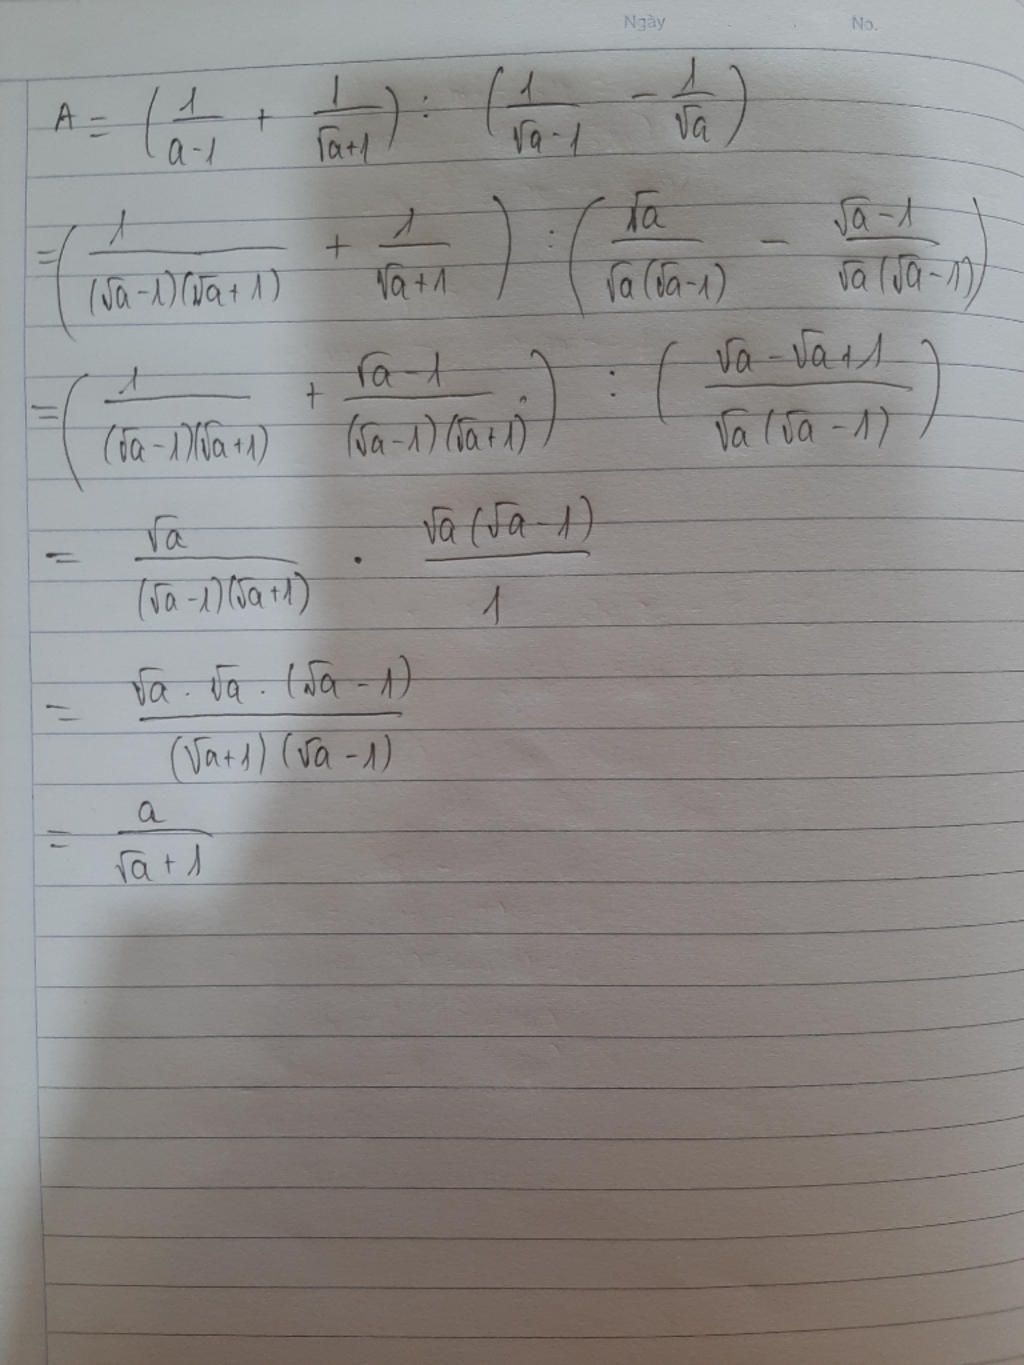 Ngày . . No.
A = (1/(a-1) + 1/(√a+1)) : (1/(√a-1) - 1/√a)
= (1/((√a-1)(√a+1)) + 1/(√a+1)) : (√a/(√a(√a-1)) - (√a-1)/(√a(√a-1)))
= (1/((√a-1)(√a+1)) + (√a-1)/((√a-1)(√a+1))) : ((√a-√a+1)/(√a(√a-1)))
= √a/((√a-1)(√a+1)) . (√a(√a-1))/1
= (√a . √a . (√a-1))/((√a+1)(√a-1))
= a/(√a+1)